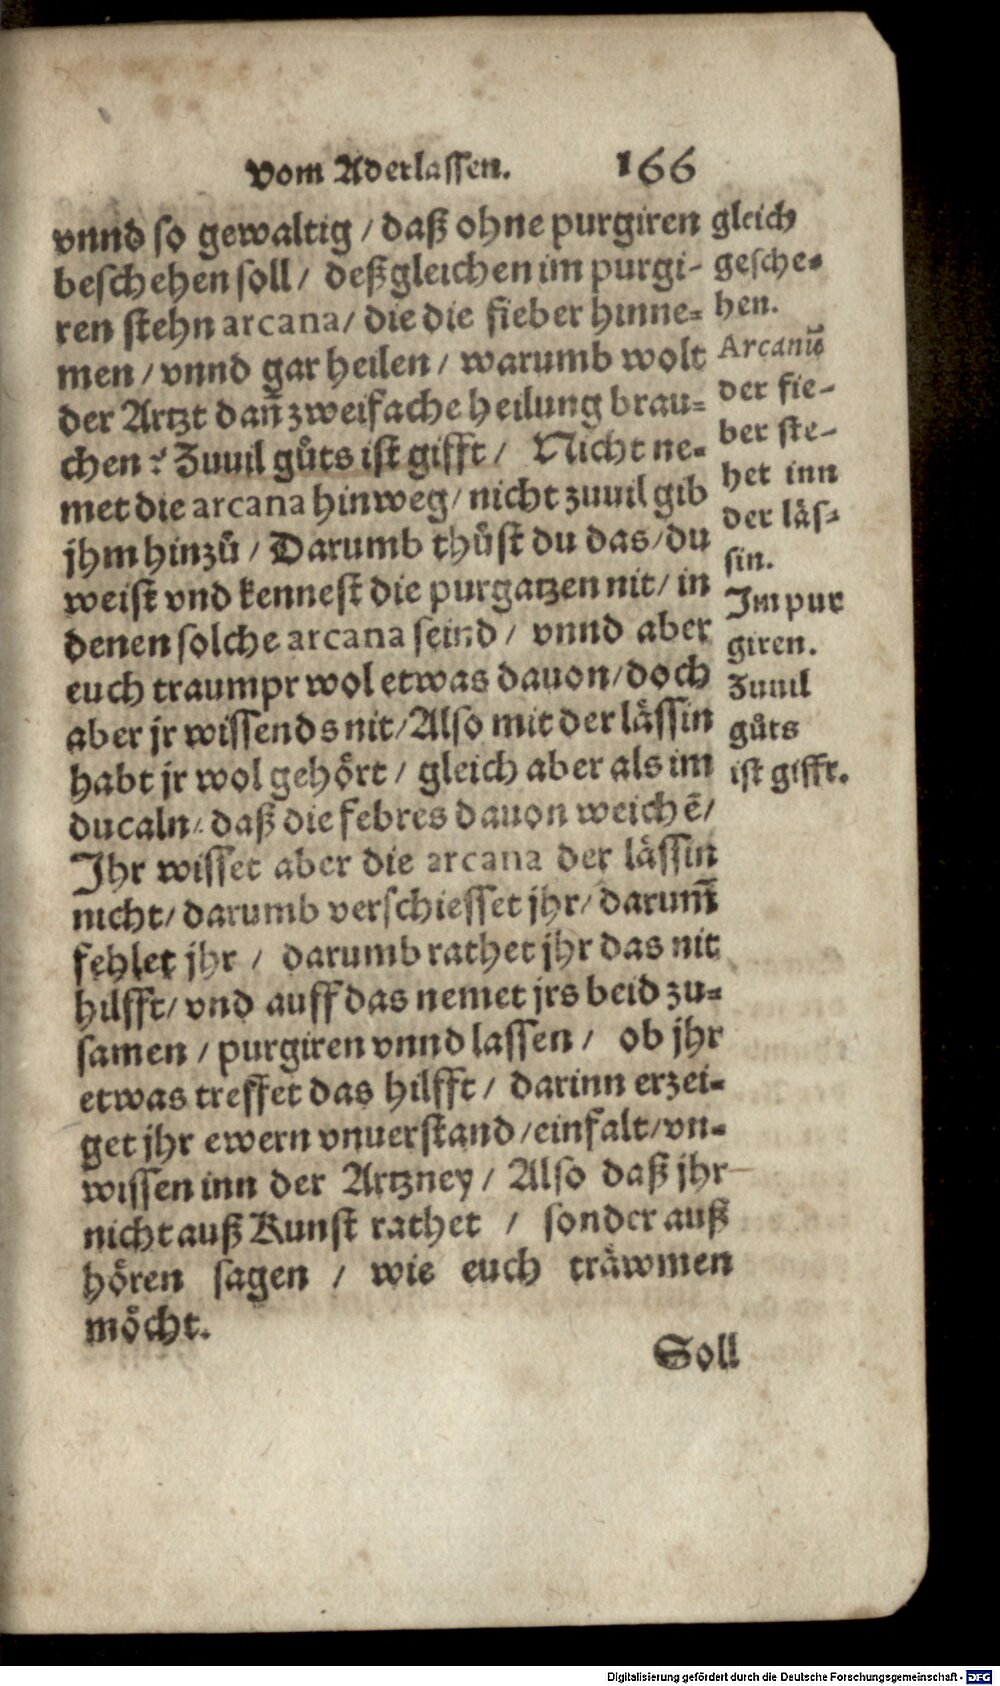 Vom Aderlassen. 166
vnnd so gewaltig / daß ohne purgiren
beschehen soll / deßgleichen im purgi-
ren stehn arcana / die die fieber hinne-
men / vnnd gar heilen / warumb wolt
der Artzt dañ zweifache heilung brau-
chen? Zuuil gůts ist gifft / Nicht ne-
met die arcana hinweg / nicht zuuil gib
jhm hinzů / Darumb thůst du das / du
weist vnd kennest die purgatzen nit / in
denen solche arcana seind / vnnd aber
euch traumpt wol etwas dauon / doch
aber jr wissends nit / Also mit der lässin
habt jr wol gehört / gleich aber als im
ducaln / daß die febres dauon weichẽ /
Ihr wisset aber die arcana der lässin
nicht / darumb verschiesset jhr / darum̃
fehlet jhr / darumb rathet jhr das nit
hilfft / vnd auff das nemet jrs beid zu-
samen / purgiren vnnd lassen / ob jhr
etwas treffet das hilfft / darinn erzei-
get jhr ewern vnuerstand / einfalt / vn-
wissen inn der Artzney / Also daß jhr
nicht auß Kunst rathet / sonder auß
hören sagen / wie euch träwmen
möcht.
Soll
gleich
gesche-
hen.
Arcanũ
der fie-
ber ste-
het inn
der läs-
sin.
Im pur
giren.
Zuuil
gůts
ist gifft.
Digitalisierung gefördert durch die Deutsche Forschungsgemeinschaft - DFG